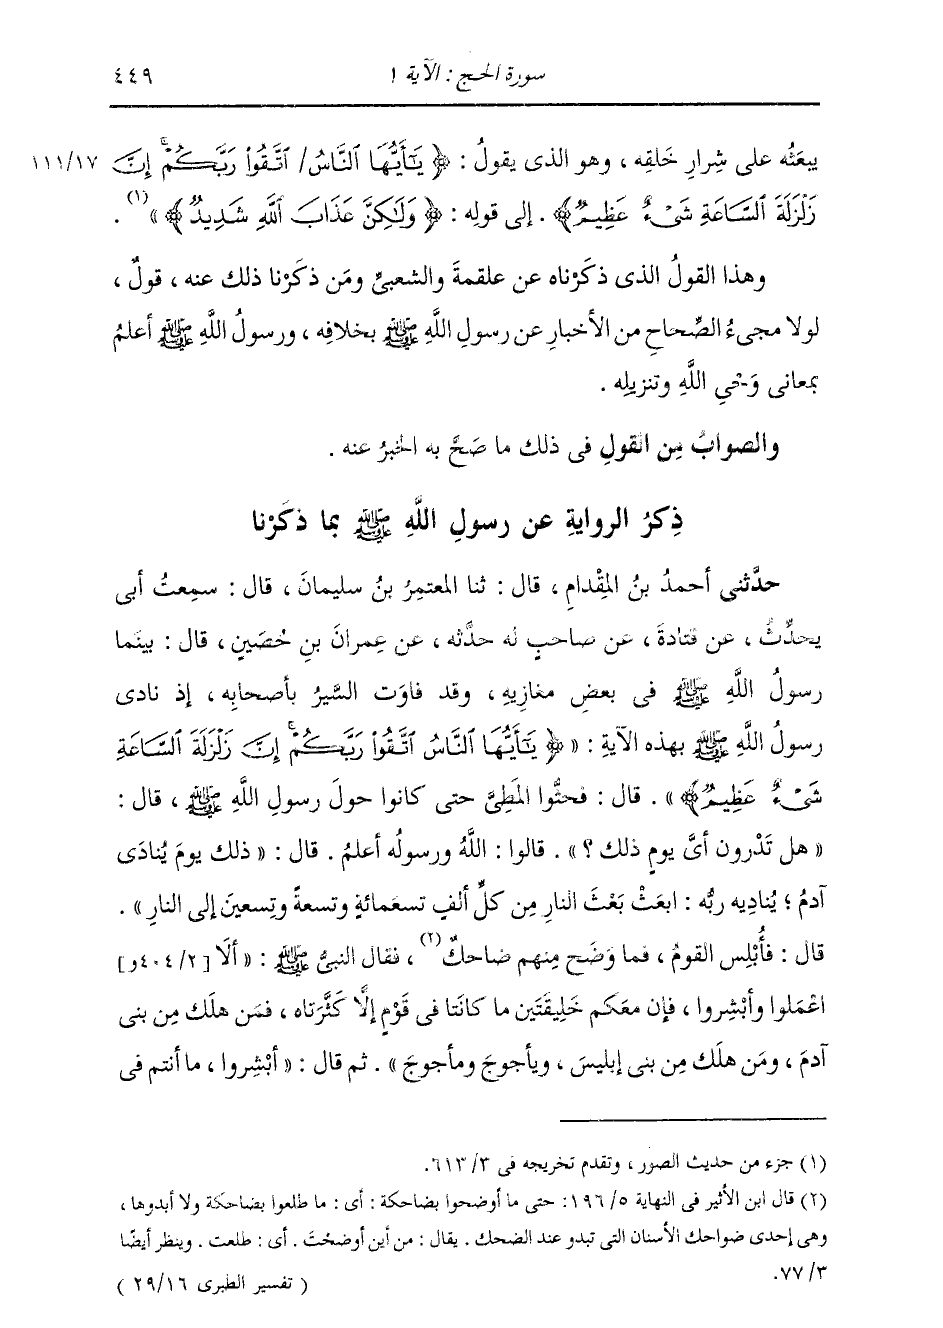 سورة الحج : الآية ١ ٤٤٩
يبعَثُه على شِرارِ خَلقِه ، وهو الذى يقولُ : ﴿ يَٰٓأَيُّهَا ٱلنَّاسُ/ ٱتَّقُوا۟ رَبَّكُمْ ۚ إِنَّ ١١١/١٧
زَلْزَلَةَ ٱلسَّاعَةِ شَىْءٌ عَظِيمٌ ﴾ . إلى قولِه : ﴿ وَلَٰكِنَّ عَذَابَ ٱللَّهِ شَدِيدٌ ﴾ »(١) .
وهذا القولُ الذى ذكَرْناه عن علقمةَ والشعبىِّ ومَن ذكَرْنا ذلك عنه ، قولٌ ،
لولا مجىءُ الصِّحاحِ من الأخبارِ عن رسولِ اللَّهِ ﷺ بخلافِه ، ورسولُ اللَّهِ ﷺ أعلمُ
بمعانى وَحْىِ اللَّهِ وتنزيلِه .
والصوابُ مِن القولِ فى ذلك ما صَحَّ به الخبرُ عنه .
ذِكرُ الروايةِ عن رسولِ اللَّهِ ﷺ بما ذكَرْنا
حدَّثنى أحمدُ بنُ المِقْدامِ ، قال : ثنا المعتمِرُ بنُ سليمانَ ، قال : سمِعتُ أبى
يحدِّثُ ، عن قتادةَ ، عن صاحبٍ له حدَّثه ، عن عِمرانَ بنِ حُصَينٍ ، قال : بينَما
رسولُ اللَّهِ ﷺ فى بعضِ مغازِيهِ ، وقد فاوَت السَّيرُ بأصحابِه ، إذ نادى
رسولُ اللَّهِ ﷺ بهذه الآيةِ : « ﴿ يَٰٓأَيُّهَا ٱلنَّاسُ ٱتَّقُوا۟ رَبَّكُمْ ۚ إِنَّ زَلْزَلَةَ ٱلسَّاعَةِ
شَىْءٌ عَظِيمٌ ﴾ » . قال : فحثُّوا المَطِىَّ حتى كانوا حولَ رسولِ اللَّهِ ﷺ ، قال :
« هل تَدْرون أىَّ يومٍ ذلك ؟ » . قالوا : اللَّهُ ورسولُه أعلمُ . قال : « ذلك يومَ يُنادَى
آدمُ ؛ يُنادِيه ربُّه : ابعَثْ بَعْثَ النارِ مِن كلِّ ألفٍ تسعَمائةٍ وتسعةً وتِسعينَ إلى النارِ » .
قال : فأُبْلِس القومُ ، فما وَضَح منهم ضاحكٌ(٢) ، فقال النبىُّ ﷺ : « ألَا [٤٠٤/٢و]
اعْمَلوا وأبْشِروا ، فإن معَكم خَلِيقَتَين ما كانَتا فى قَوْمٍ إلَّا كَثَّرَتاه ، فمَن هلَك مِن بنى
آدمَ ، ومَن هلَك مِن بنى إبليسَ ، ويأجوجَ ومأجوجَ » . ثم قال : « أبْشِروا ، ما أنتم فى
(١) جزء من حديث الصور ، وتقدم تخريجه فى ٣/ ٦١٣.
(٢) قال ابن الأثير فى النهاية ٥/ ١٩٦: حتى ما أوضحوا بضاحكة : أى : ما طلعوا بضاحكة ولا أبدوها ،
وهى إحدى ضواحك الأسنان التى تبدو عند الضحك . يقال : من أين أوضحْتَ . أى : طلعت . وينظر أيضًا
٣/ ٧٧.
( تفسير الطبرى ٢٩/١٦ )